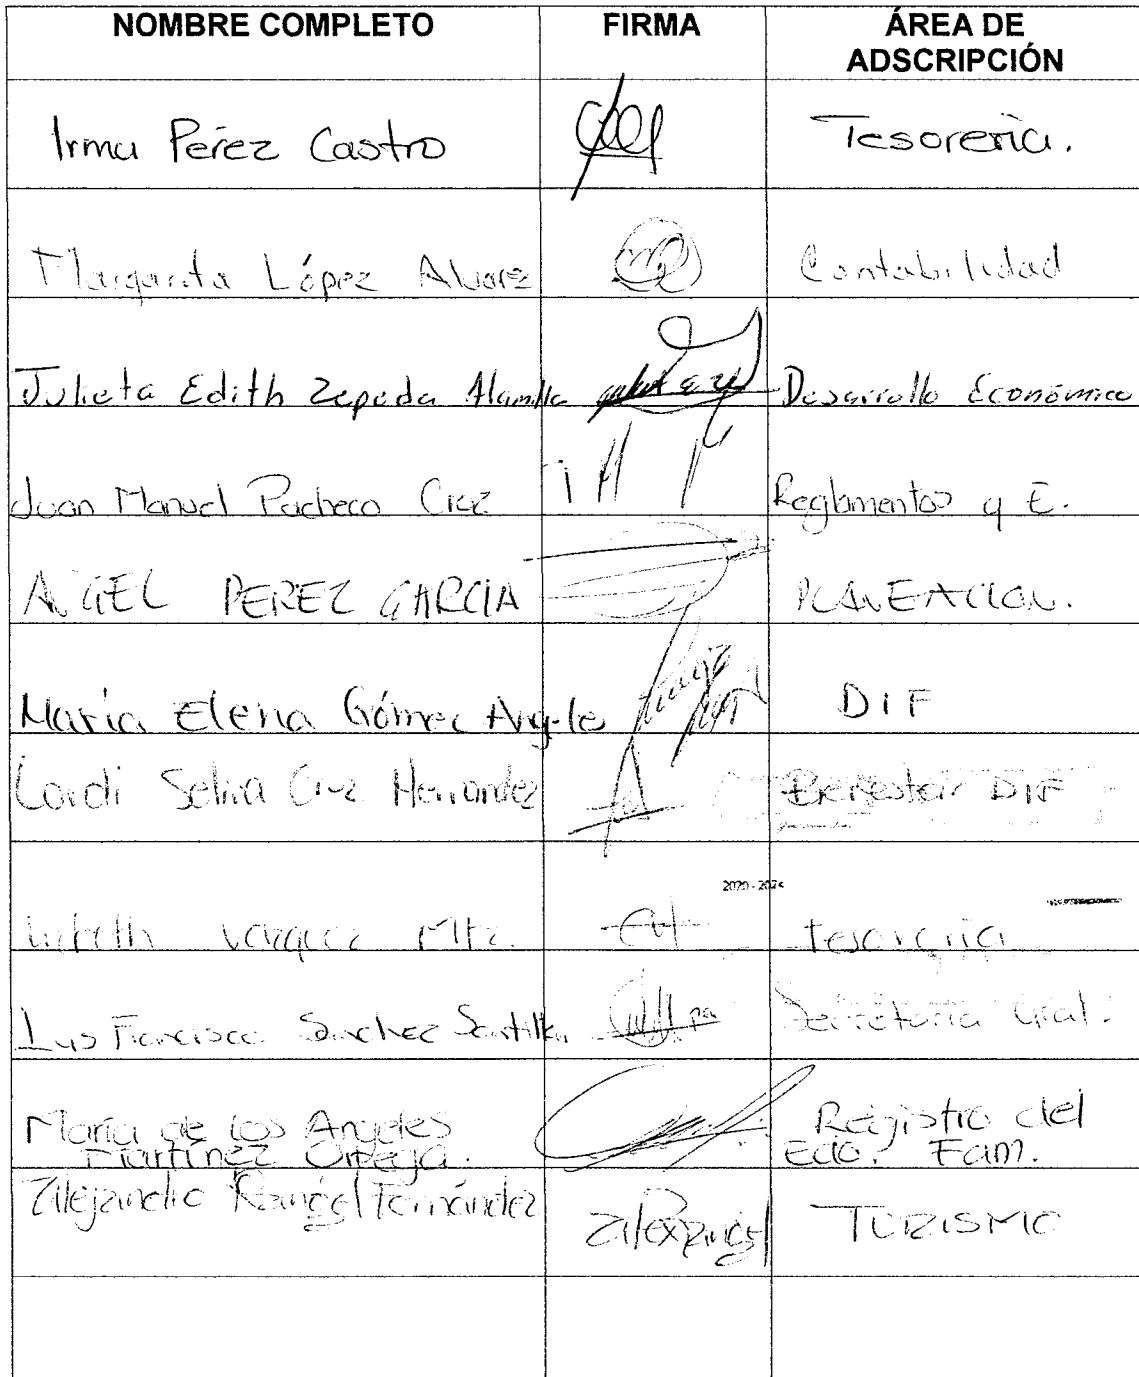 NOMBRE COMPLETO FIRMA ÁREA DE
ADSCRIPCIÓN
Irma Pérez Castro Tesorería.
Margarita López Alvarez Contabilidad
Julieta Edith Zepeda Alamilla Desarrollo Económico
Juan Manuel Pacheco Cruz Reglamentos y E.
ANGEL PEREZ GARCIA PLANEACION.
María Elena Gómez Angeles DIF
Selina Cruz Hernandez Bienestar DIF
2020 - 2024
Vazquez Mtz. tesorería
Luis Francisco Sanchez Santillan Secretaria Gral.
María de los Angeles Registro del
Martínez Ortega. Edo. Fam.
Alejandro Rangel Fernández
TURISMO